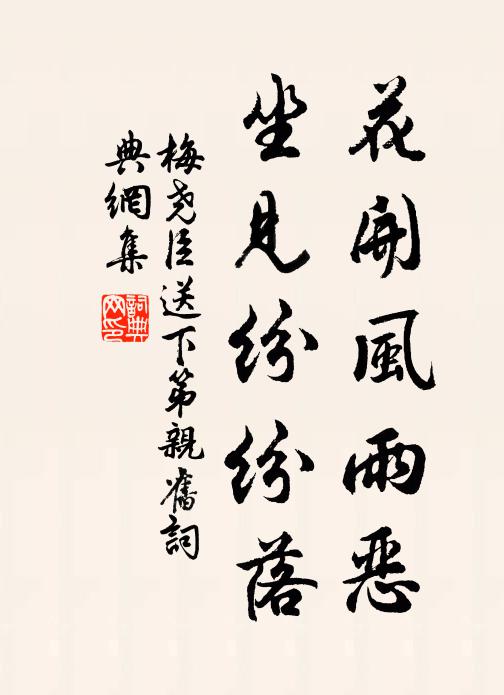 花開風雨惡
坐見紛紛落
梅堯臣送下第親舊詞
典網集
詞典
网印